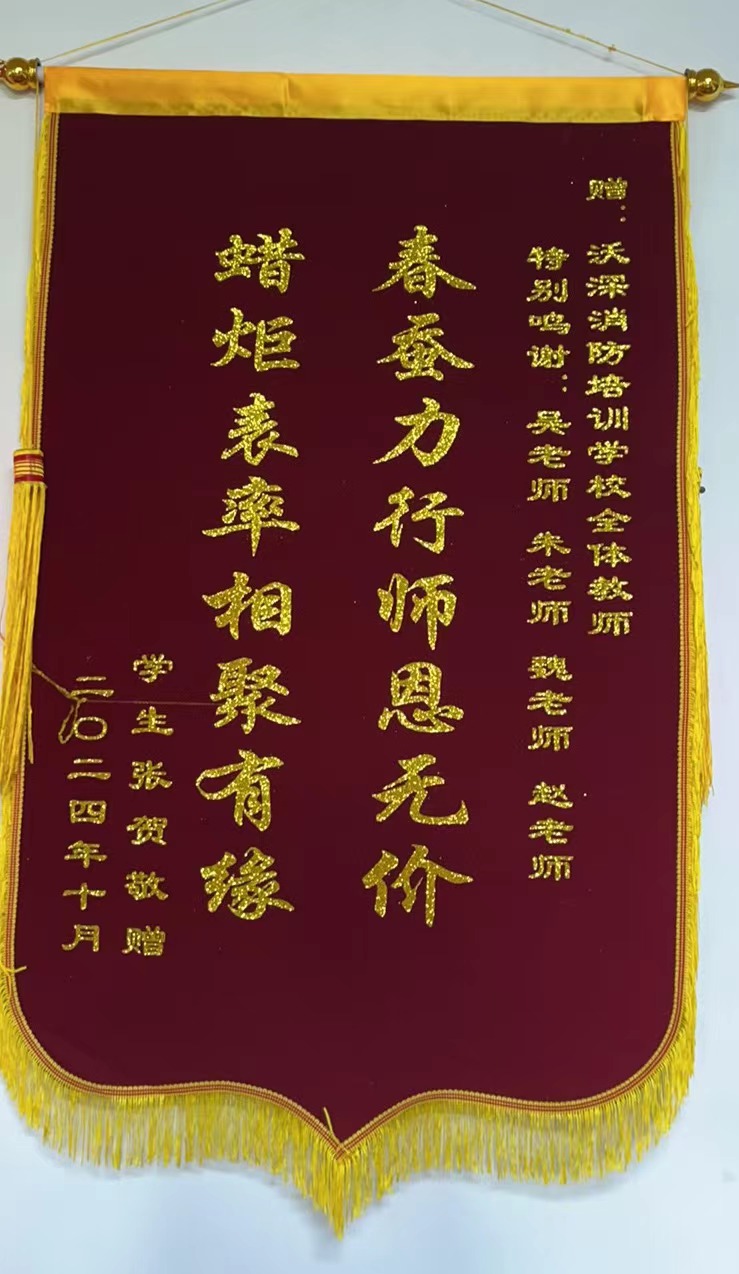 赠：沃深消防培训学校全体教师
特别鸣谢：吴老师 朱老师 魏老师 赵老师
春蚕力行师恩无价
蜡炬表率相聚有缘
学生张贺敬赠
二〇二四年十月